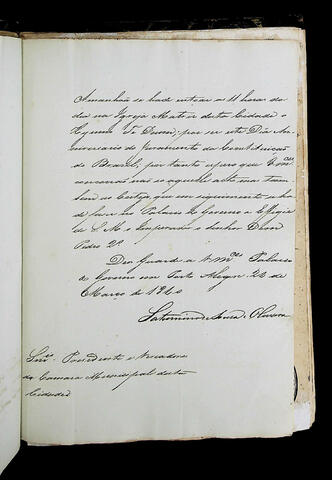 Amanhãa se hade entoar as 11 horas do
dia na Igreja Matriz desta Cidade o
Hymno Te Deum; por ser este Dia An-
niversario do Juramento da Constituição
do Brazil; por tanto espero que V.mces
concorrão não só aquelle acto mas tam
bem ao Cortejo, que em seguimento se ha
de fazer no Palacio do Governo a Effigie
de S. M. o Imperador o Senhor Dom
Pedro 2º
Deos Guarde a V.mces Palacio
do Governo em Porto Alegre 24 de
Março de 1840
Saturnino de Souza e Oliveira
Snr.es Presidente e Vereadores
da Camara Municipal desta
Cidade